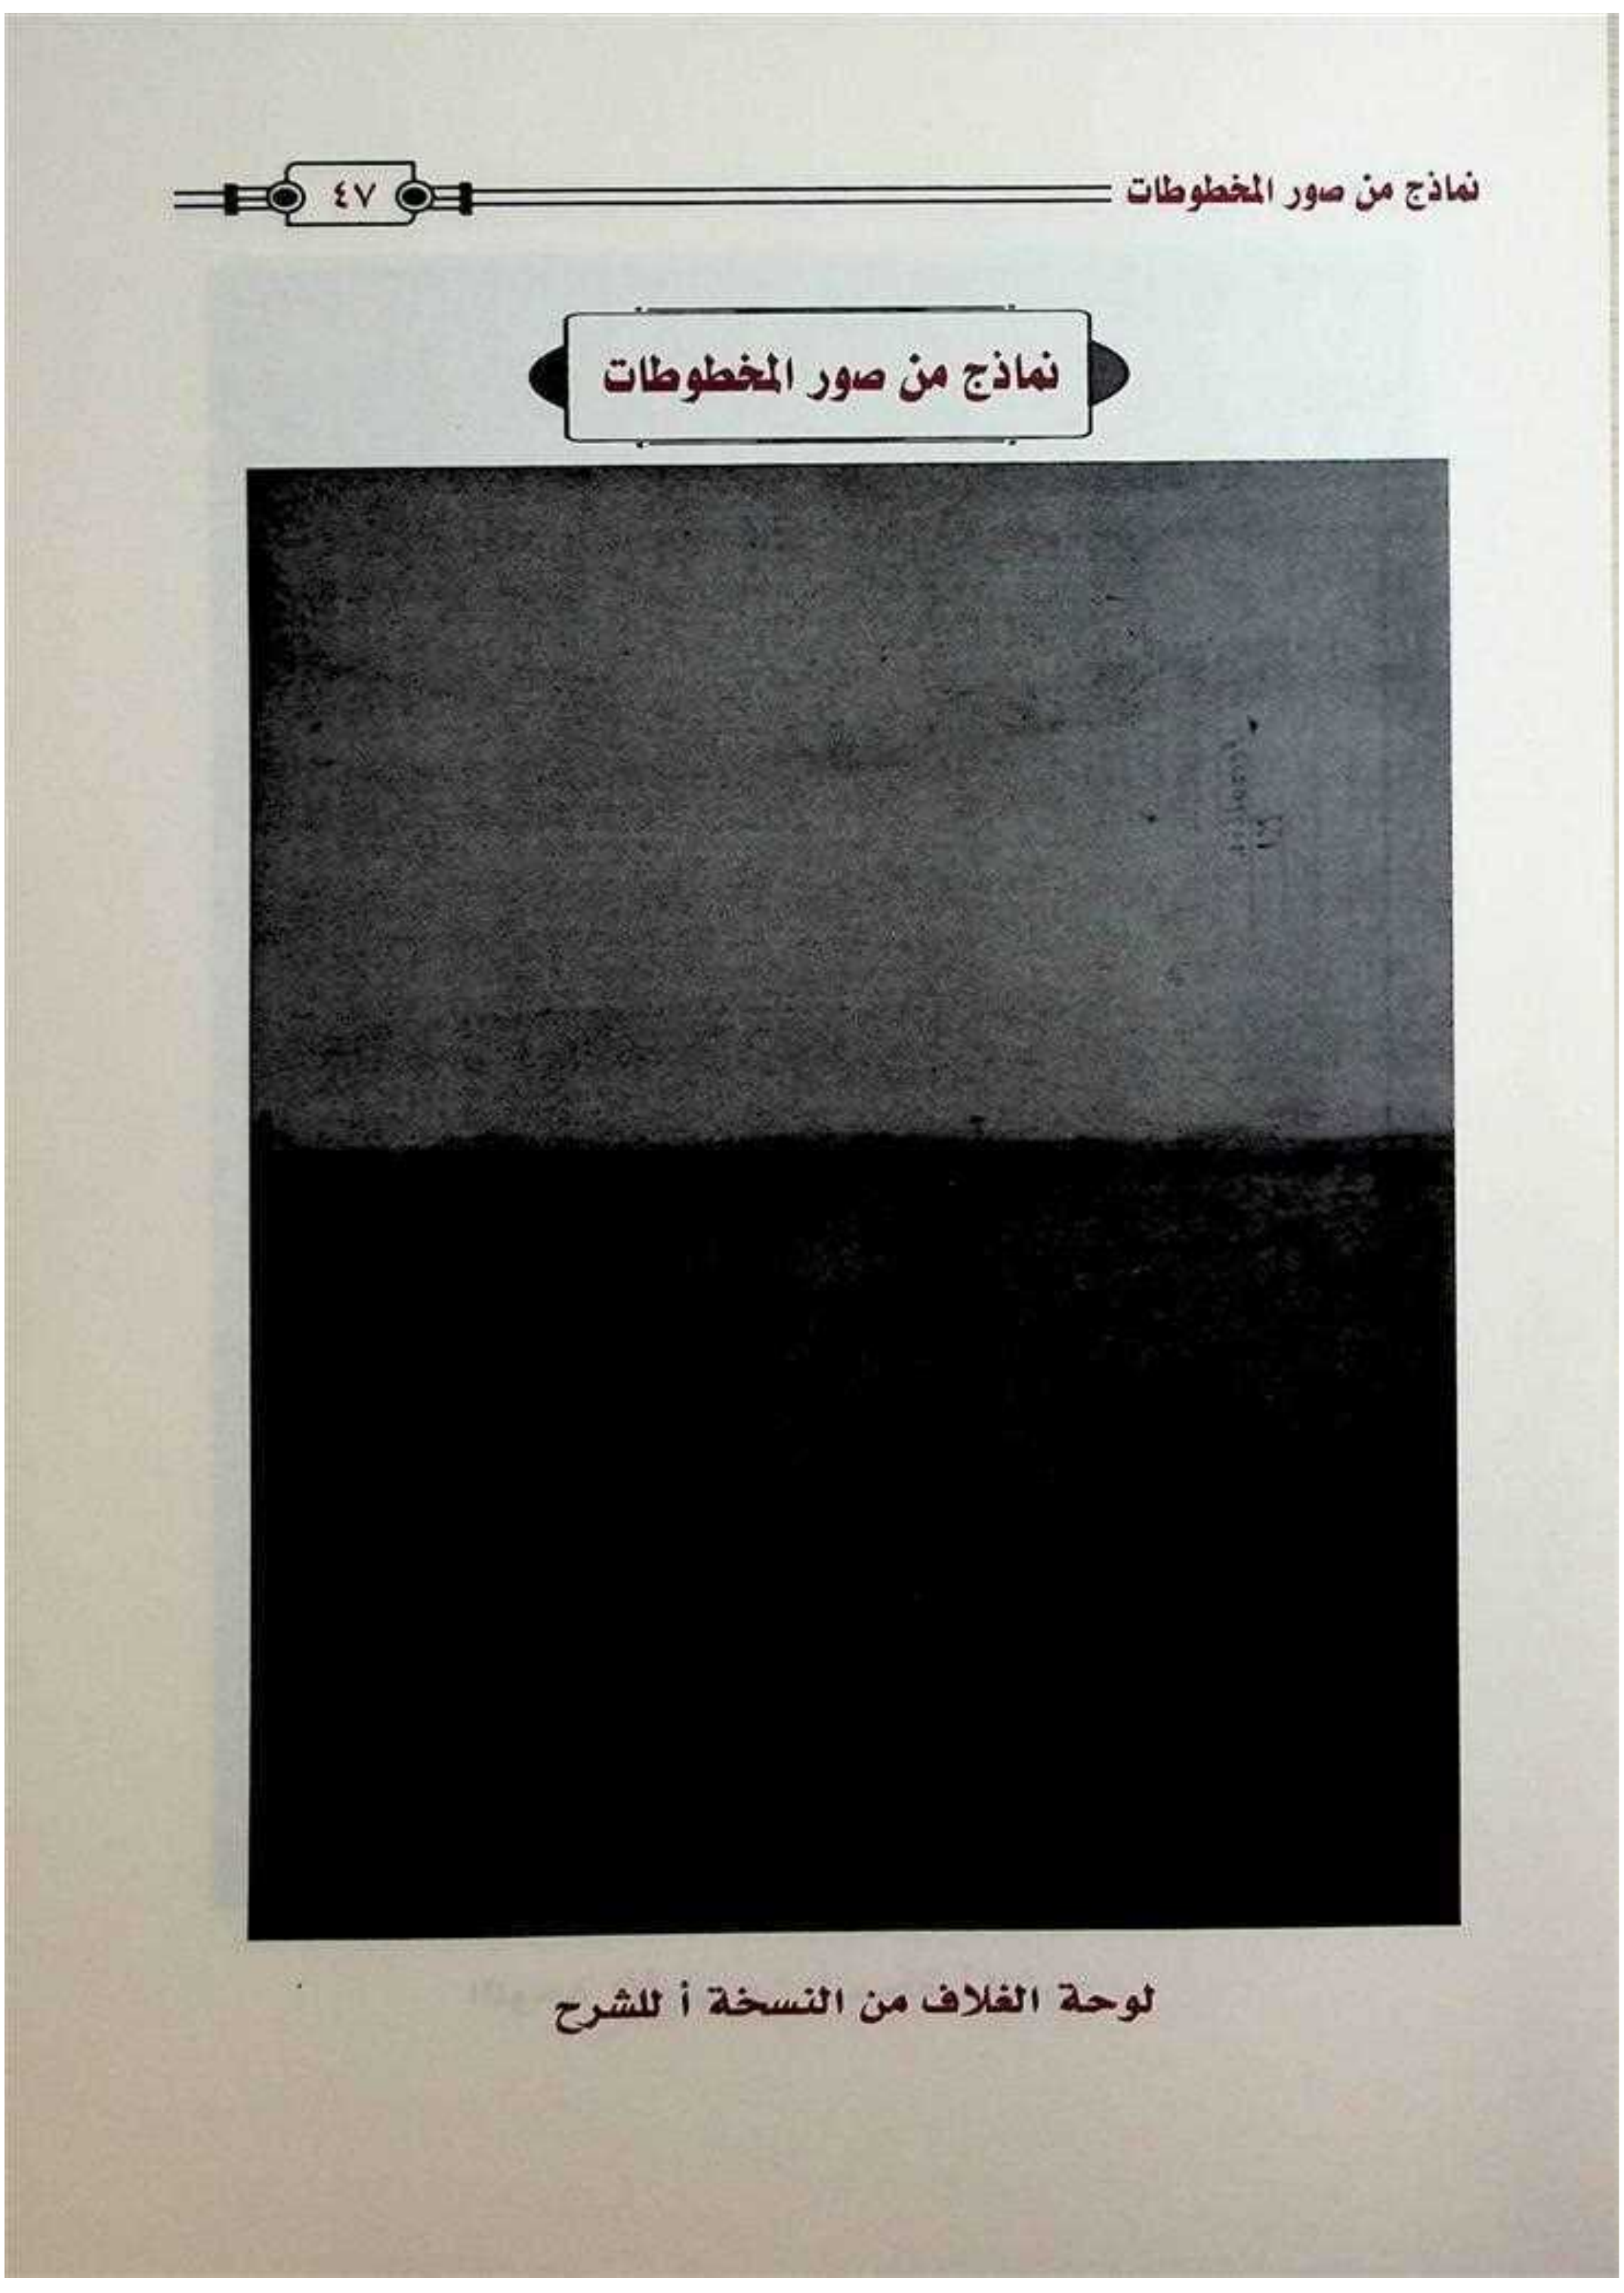 نماذج من صور المخطوطات ٤٧
نماذج من صور المخطوطات
لوحة الغلاف من النسخة أ للشرح